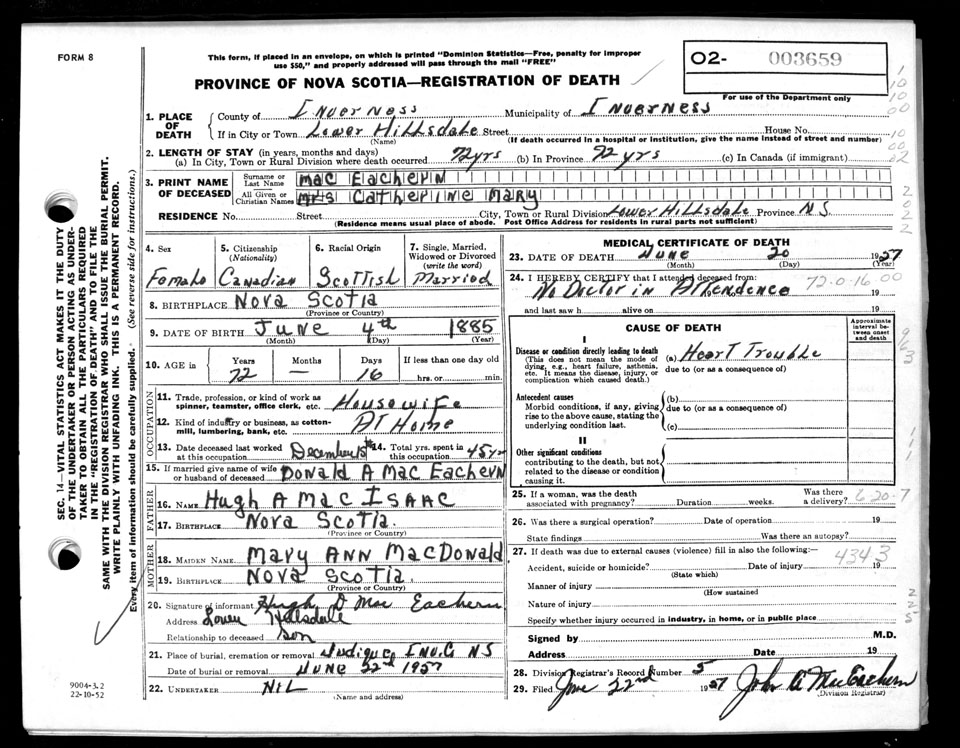 FORM 8
This form, if placed in an envelope, on which is printed "Dominion Statistics—Free, penalty for improper
use $50," and properly addressed will pass through the mail "FREE"
PROVINCE OF NOVA SCOTIA—REGISTRATION OF DEATH
O2- 003659
For use of the Department only
1. PLACE OF DEATH { County of Inverness Municipality of Inverness
If in City or Town Lower Hillsdale Street House No.
(Name) (If death occurred in a hospital or institution, give the name instead of street and number)
2. LENGTH OF STAY (in years, months and days)
(a) In City, Town or Rural Division where death occurred 72 yrs (b) In Province 72 yrs (c) In Canada (if immigrant)
3. PRINT NAME OF DECEASED { Surname or Last Name Mac Eachern
All Given or Christian Names Mrs Catherine Mary
RESIDENCE No. Street City, Town or Rural Division Lower Hillsdale Province N S.
(Residence means usual place of abode. Post Office Address for residents in rural parts not sufficient)
4. Sex 5. Citizenship (Nationality) 6. Racial Origin 7. Single, Married, Widowed or Divorced (write the word)
Female Canadian Scottish Married
8. BIRTHPLACE Nova Scotia
(Province or Country)
9. DATE OF BIRTH June 4th 1885
(Month) (Day) (Year)
10. AGE in { Years Months Days If less than one day old
72 — 16 hrs. or min.
OCCUPATION
11. Trade, profession, or kind of work as
spinner, teamster, office clerk, etc. Housewife
12. Kind of industry or business, as cotton-
mill, lumbering, bank, etc. At Home
13. Date deceased last worked at this occupation 14. Total yrs. spent in this occupation 45 yrs
15. If married give name of wife
or husband of deceased Donald A Mac Eachern
FATHER
16. NAME Hugh A Mac Isaac
17. BIRTHPLACE Nova Scotia.
(Province or Country)
MOTHER
18. MAIDEN NAME Mary Ann MacDonald
19. BIRTHPLACE Nova Scotia.
(Province or Country)
20. Signature of informant Hugh D Mac Eachern
Address Lower Hillsdale
Relationship to deceased Son
21. Place of burial, cremation or removal Judique Inv. C NS
Date of burial or removal June 22nd 1957
22. UNDERTAKER Nil
(Name and address)
MEDICAL CERTIFICATE OF DEATH
23. DATE OF DEATH June 20 1957
(Month) (Day) (Year)
24. I HEREBY CERTIFY that I attended deceased from:
No Doctor in Attendence 19
72-0-16 00
and last saw h alive on 19
CAUSE OF DEATH
Approximate interval between onset and death
I
Disease or condition directly leading to death (a) Heart Trouble
(This does not mean the mode of due to (or as a consequence of)
dying, e.g., heart failure, asthenia,
etc. It means the disease, injury, or
complication which caused death.)
Antecedent causes (b)
Morbid conditions, if any, giving due to (or as a consequence of)
rise to the above cause, stating the
underlying condition last. (c)
II
Other significant conditions
contributing to the death, but not
related to the disease or condition
causing it.
25. If a woman, was the death Was there
associated with pregnancy? Duration weeks. a delivery?
6-20-7
26. Was there a surgical operation? Date of operation 19
State findings Was there an autopsy?
27. If death was due to external causes (violence) fill in also the following:—
4343
Accident, suicide or homicide? Date of injury 19
(State which)
Manner of injury
(How sustained
Nature of injury
Specify whether injury occurred in industry, in home, or in public place
Signed by M.D.
Address Date 19
28. Division Registrar's Record Number 5
29. Filed June 22nd 1957 John A MacEachern
(Division Registrar)
SEC. 14—VITAL STATISTICS ACT MAKES IT THE DUTY
OF THE UNDERTAKER OR PERSON ACTING AS UNDER-
TAKER TO OBTAIN ALL THE PARTICULARS REQUIRED
IN THE "REGISTRATION OF DEATH" AND TO FILE THE
SAME WITH THE DIVISION REGISTRAR WHO SHALL ISSUE THE BURIAL PERMIT.
WRITE PLAINLY WITH UNFADING INK. THIS IS A PERMANENT RECORD.
Every item of information should be carefully supplied. (See reverse side for instructions.)
9004-3.2
22-10-52